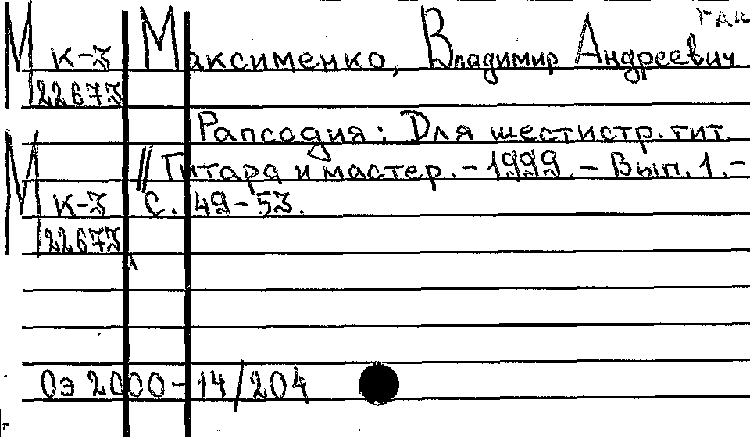 М к-3 Максименко, Владимир Андреевич
22673
Рапсодия: Для шестистр. гит.
М // Гитара и мастер. - 1999. - Вып. 1. -
к-3 С. 49-53.
22673
Оэ 2000-14/204